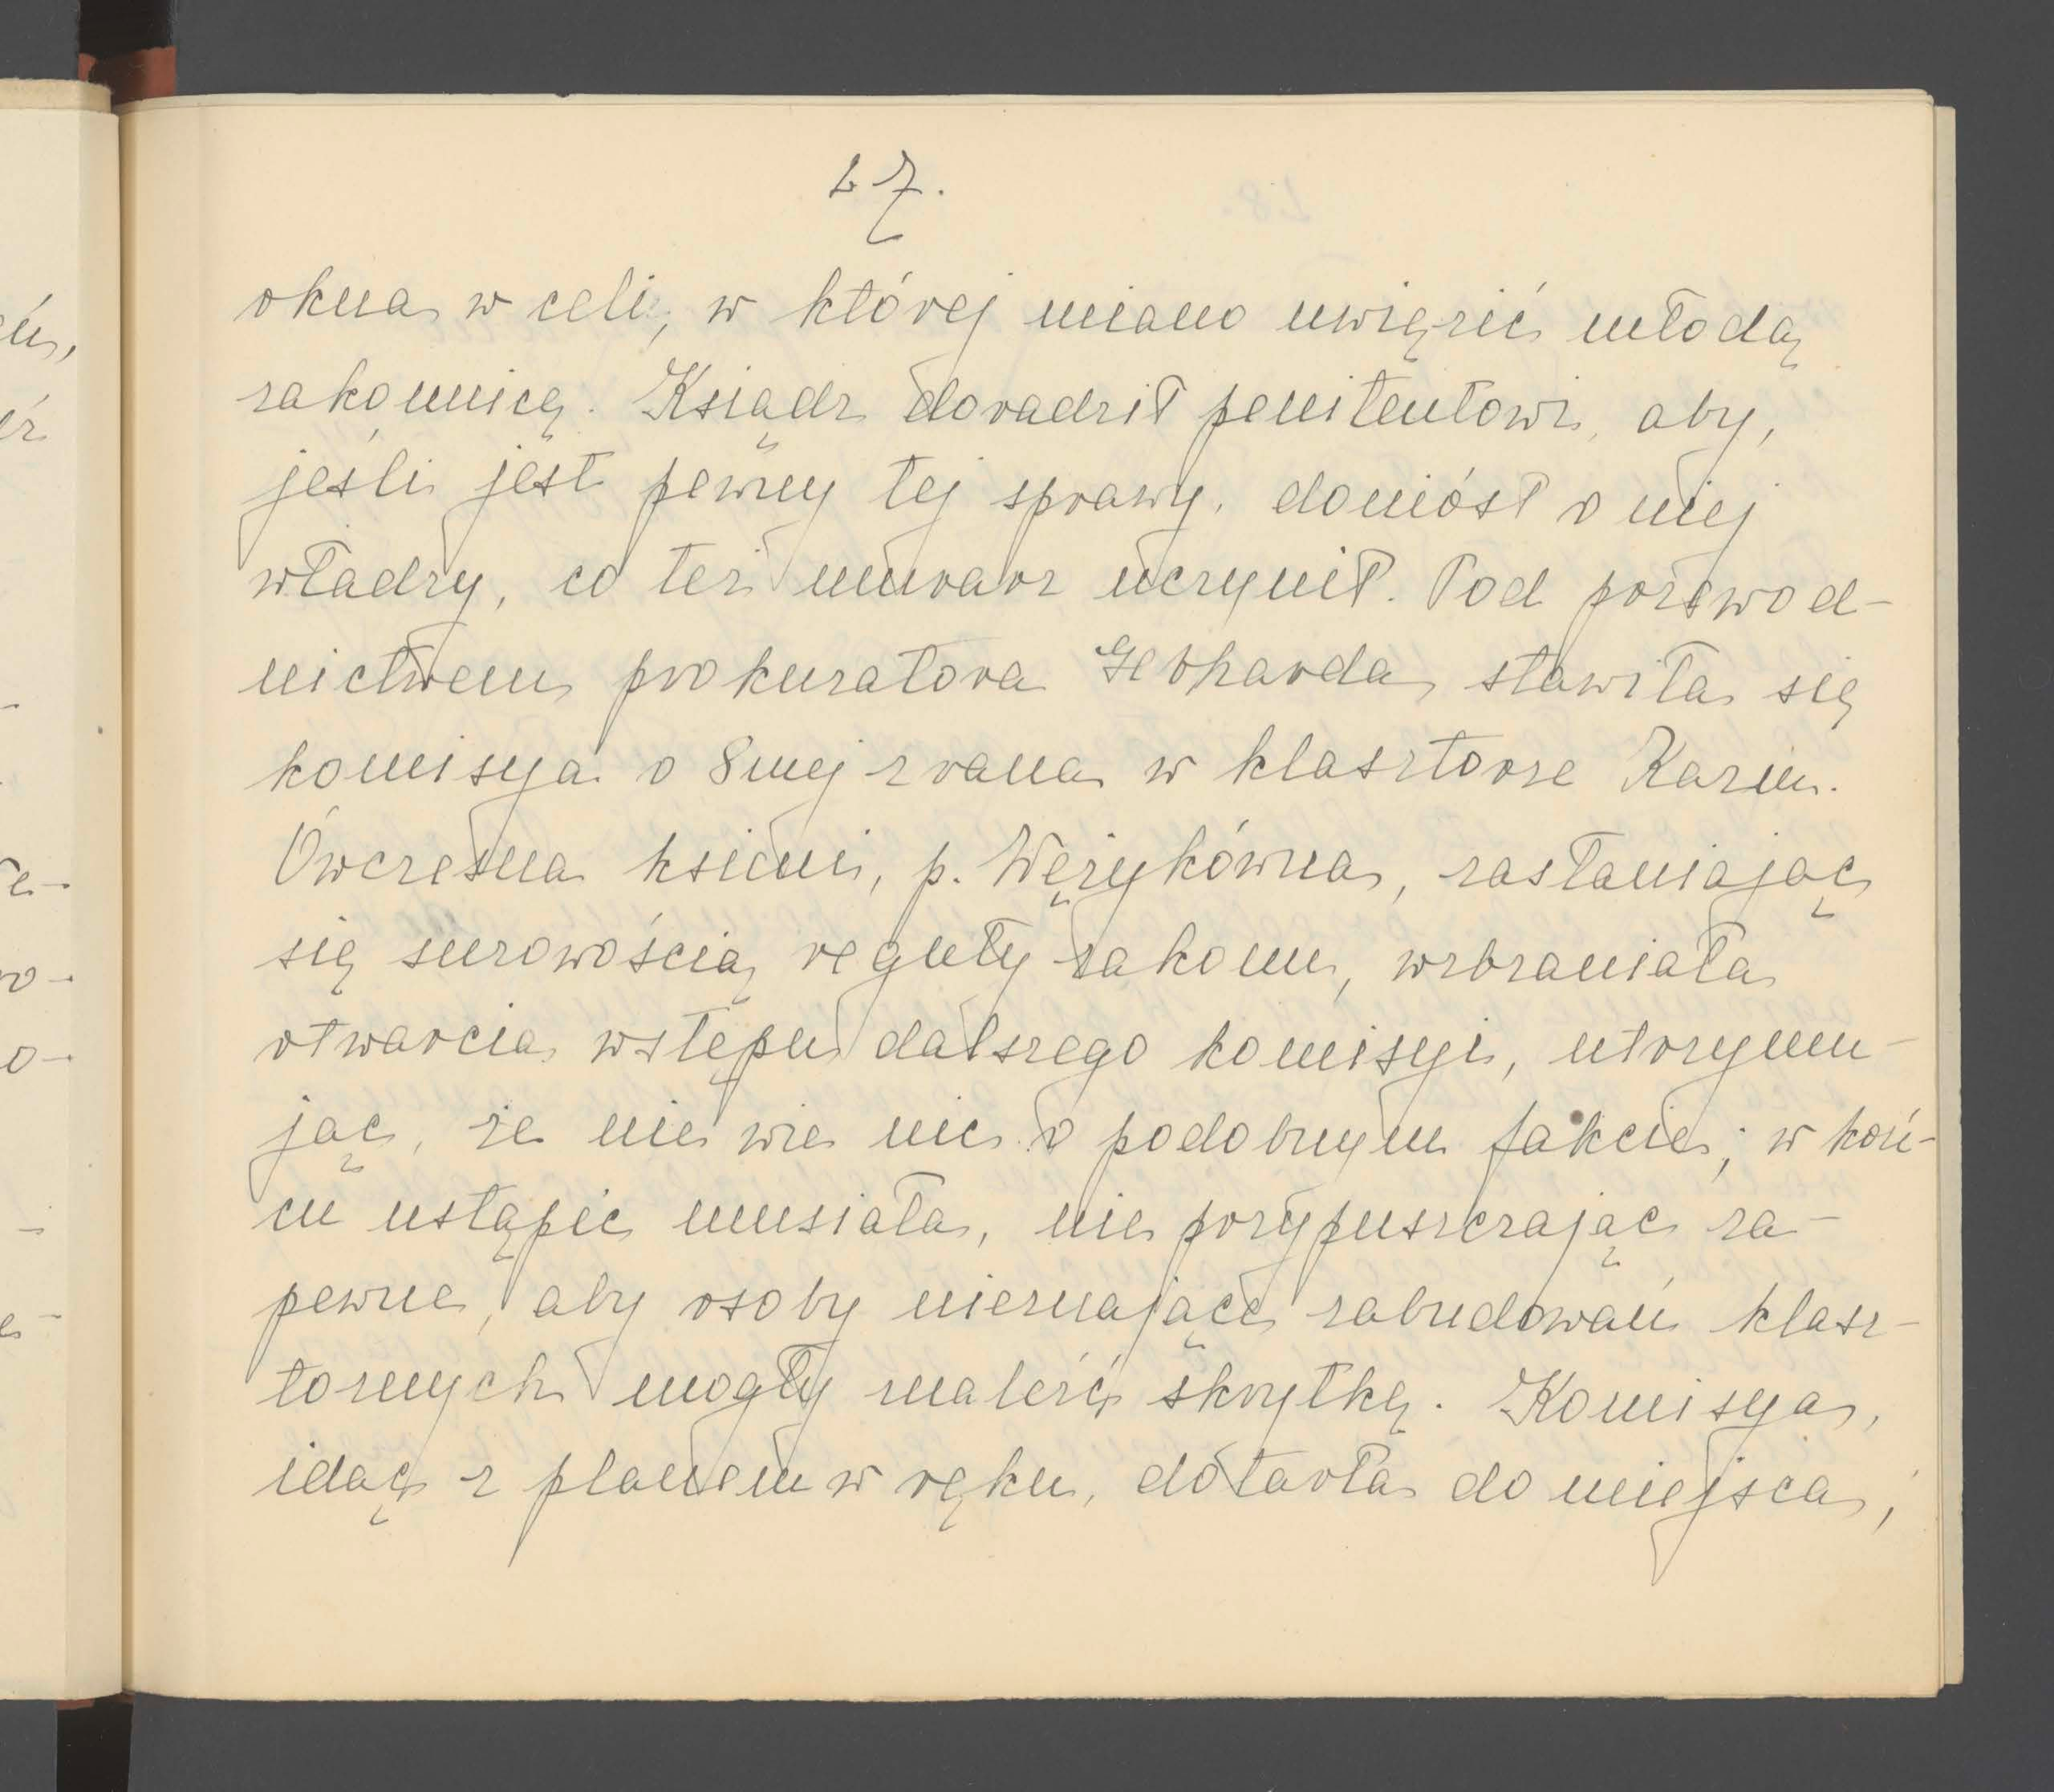 27.
okna w celi, w której miano uwięzić młodą
zakonnicę. Ksiądz doradził penitentowi, aby,
jeśli jest pewny tej sprawy, doniósł o niej
władzy, co też murarz uczynił. Pod przewod-
nictwem prokuratora Gebharda stawiła się
komisya o 8mej zrana w klasztorze Kazim.
Ówczesna ksieni, p. Wężykówna, zasłaniając
się surowością reguły zakonu, wzbraniała
otwarcia wstępu dalszego komisyi, utrzymu-
jąc, że nie wie nic o podobnym fakcie; w koń-
cu ustąpić musiała, nie przypuszczając za-
pewne, aby osoby nieznające zabudowań klasz-
tornych mogły znaleźć skrytkę. Komisya,
idąc z planem w ręku, dotarła do miejsca,